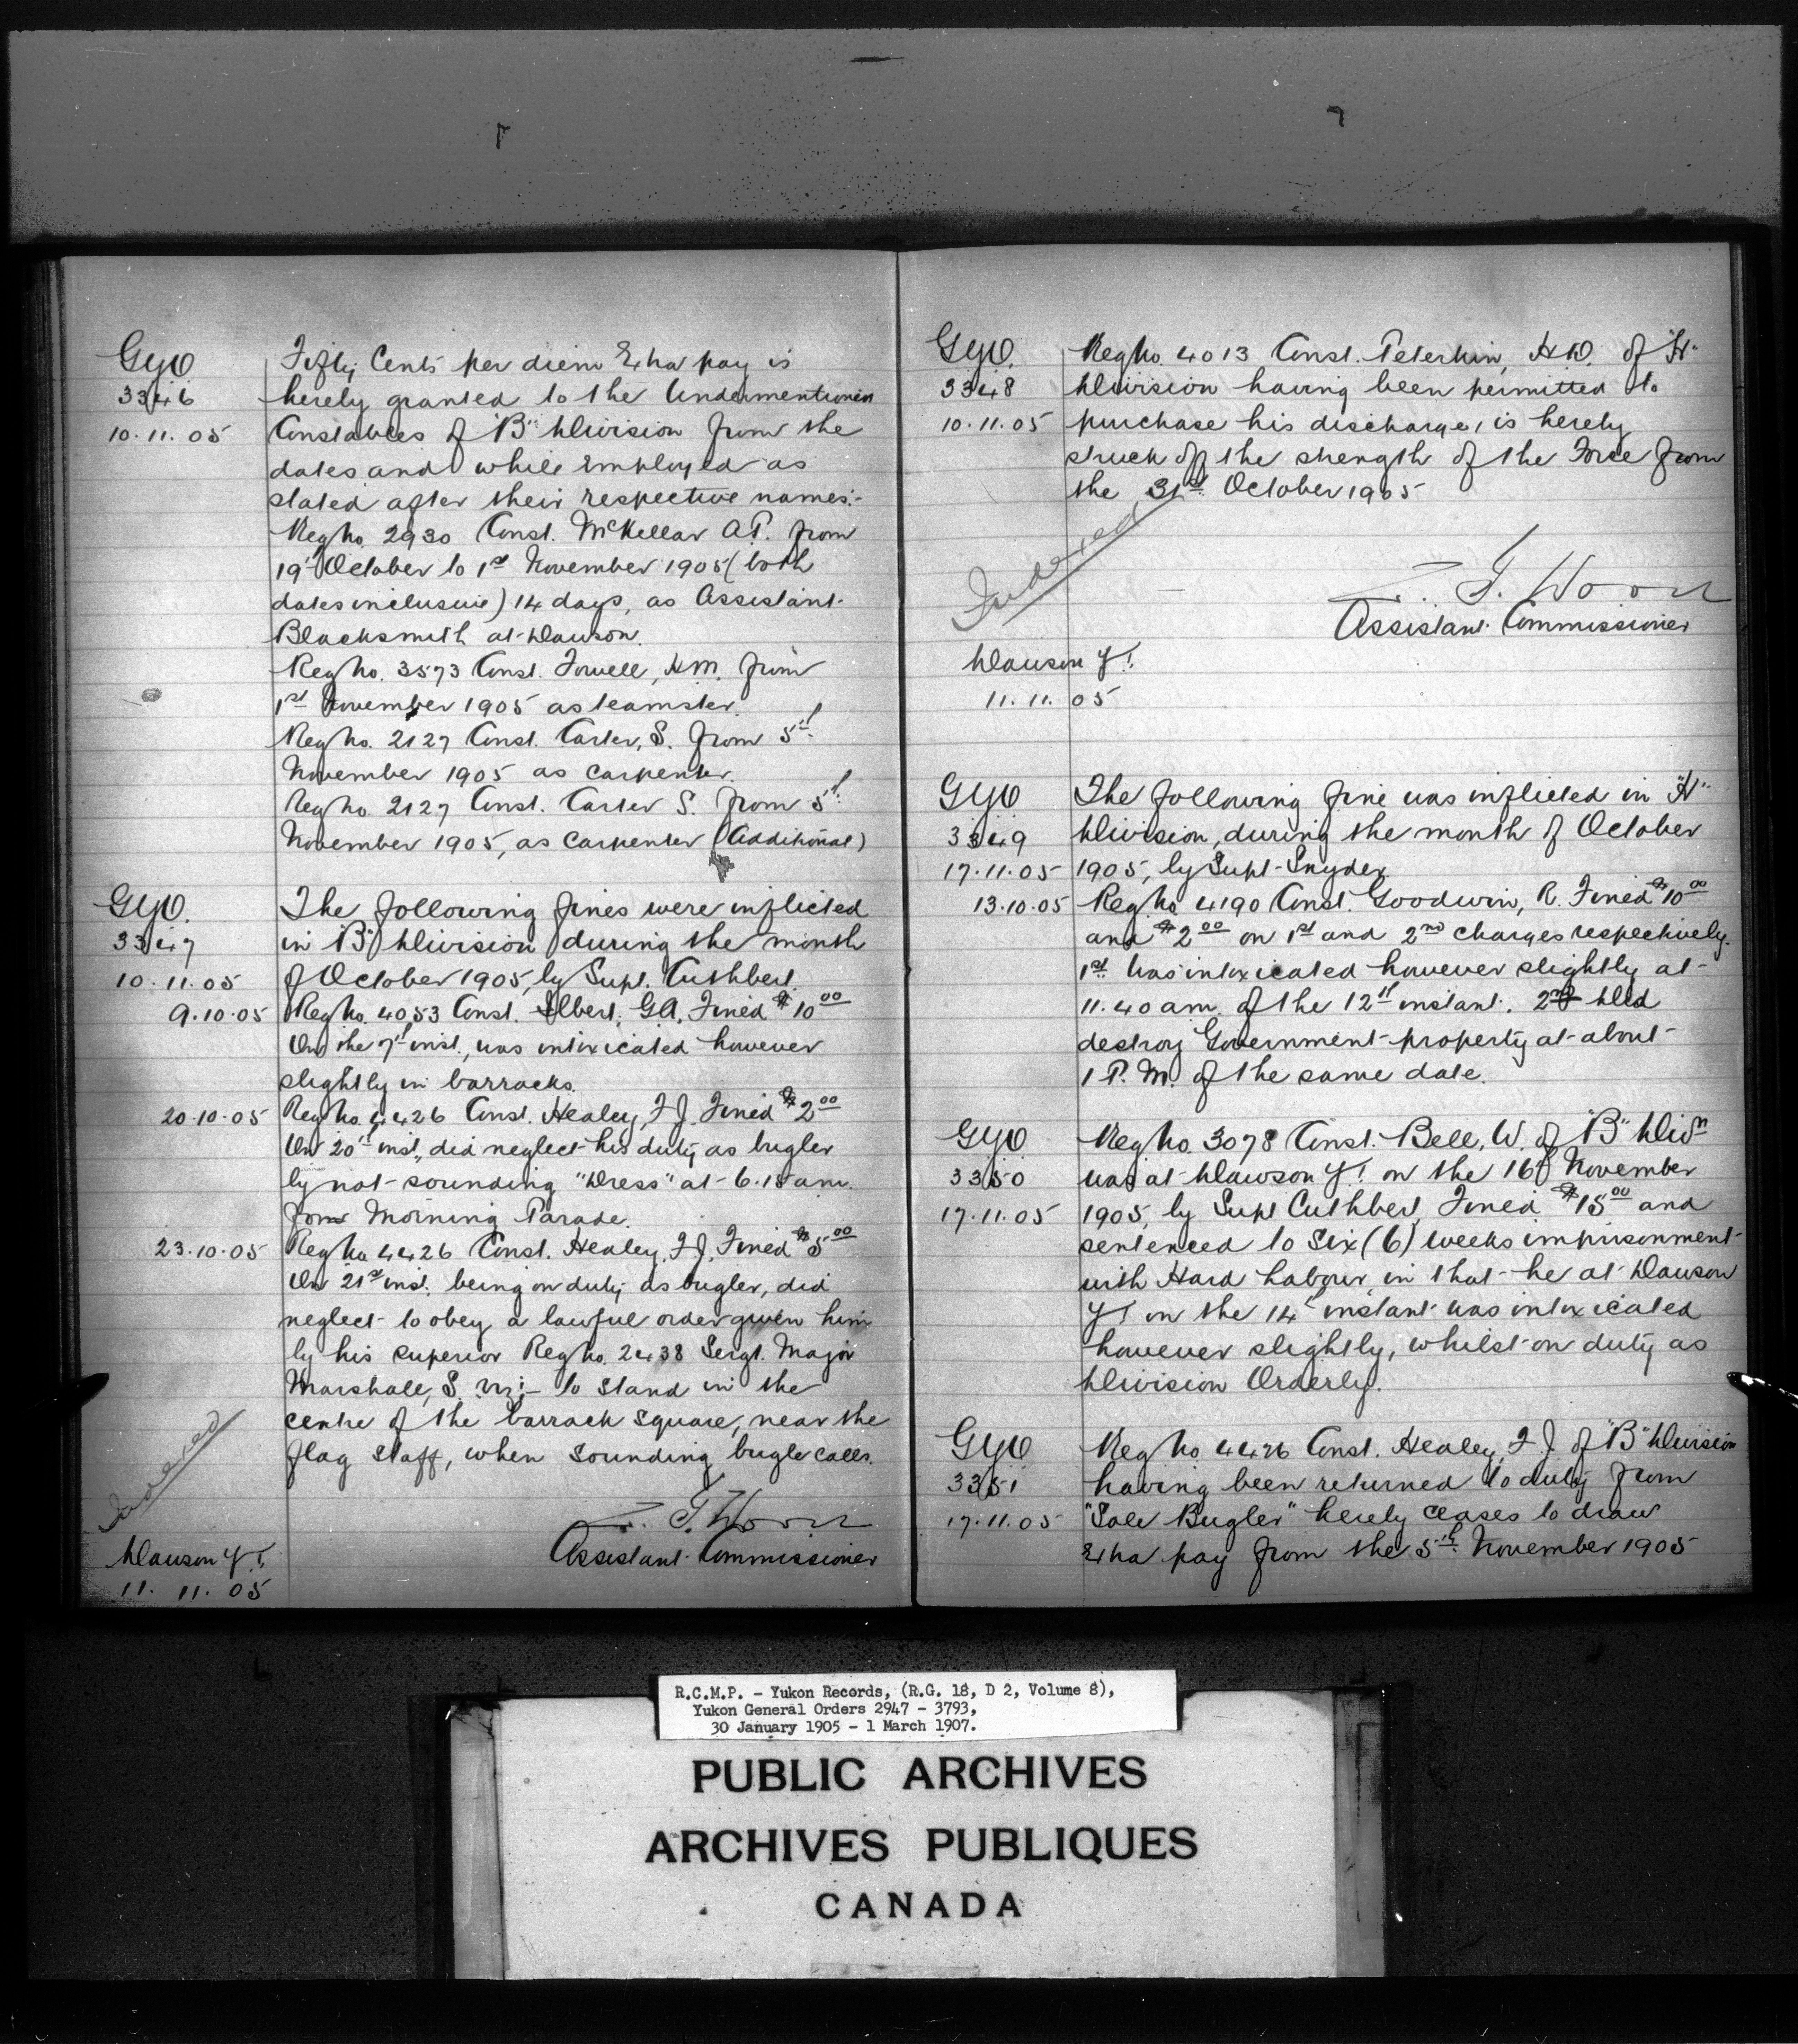 GYO
3346
10.11.05
Fifty Cents per diem Extra pay is
hereby granted to the Undermentioned
Constables of "B" Division from the
dates and while Employed as
stated after their respective names:-
Reg No. 2930 Const. McKellar A.P. from
19th October to 1st November 1905 (both
dates inclusive) 14 days, as Assistant
Blacksmith at Dawson.
Reg No. 3573 Const. Fowell, H.M. from
1st November 1905 as teamster.
Reg No. 2127 Const. Carter, S. from 5th
November 1905 as Carpenter.
Reg No. 2127 Const. Carter S. from 5th
November 1905, as Carpenter (Additional)
GYO.
3347
10.11.05
The following fines were inflicted
in "B" Division during the month
of October 1905, by Supt. Cuthbert.
9.10.05 Reg No. 4053 Const. Ilbert, G.A. Fined $10 00
On the 7th inst., was intoxicated however
slightly in barracks.
20.10.05 Reg No. 4426 Const. Healey, F.J. Fined $2 00
On 20th inst., did neglect his duty as bugler
by not sounding "Dress" at 6.15 am.
for Morning Parade.
23.10.05 Reg No. 4426 Const. Healey, F.J. Fined $5 00
On 21st inst. being on duty as bugler, did
neglect to obey a lawful order given him
by his superior Reg No. 2438 Sergt. Major
Marshall, S. viz:- to stand in the
centre of the barrack square, near the
flag staff, when sounding bugle calls.
Indexed
Z. T. Wood
Assistant Commissioner
Dawson Y.T.
11. 11. 05
GYO.
3348
10.11.05
Reg No. 4013 Const. Peterkin, H.D. of "H"
Division having been permitted to
purchase his discharge, is hereby
struck off the strength of the Force from
the 31st October 1905
Indexed
Z. T. Wood
Assistant Commissioner
Dawson Y.T.
11. 11. 05
GYO
3349
17.11.05
The following fine was inflicted in "H"
Division, during the month of October
1905, by Supt. Snyder.
13.10.05 Reg No. 4190 Const. Goodwin, R. Fined $10 00
and $2 00 on 1st and 2nd charges respectively.
1st. Was intoxicated however slightly at
11.40 am. of the 12th instant. 2nd Did
destroy Government property at about
1 P.M. of the same date.
GYO
3350
17.11.05
Reg No. 3078 Const. Bell, W. of "B" Divn
was at Dawson Y.T. on the 16th November
1905, by Supt Cuthbert, Fined $15 00 and
sentenced to Six (6) weeks imprisonment
with Hard Labour in that he at Dawson
Y.T. on the 14th instant was intoxicated
however slightly, whilst on duty as
Division Orderly.
GYO
3351
17.11.05
Reg No. 4426 Const. Healey, F.J. of "B" Division
having been returned to duty from
"Sole Bugler" hereby ceases to draw
Extra pay from the 5th November 1905
R.C.M.P. - Yukon Records, (R.G. 18, D 2, Volume 8),
Yukon General Orders 2947 - 3793,
30 January 1905 - 1 March 1907.
PUBLIC ARCHIVES
ARCHIVES PUBLIQUES
CANADA